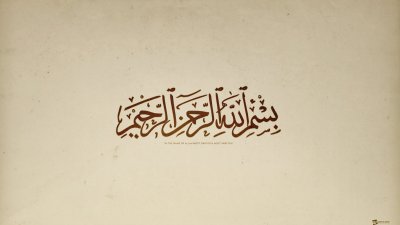 بِسْمِ ٱللَّهِ ٱلرَّحْمَٰنِ ٱلرَّحِيمِ
IN THE NAME OF ALLAH MOST GRACIOUS MOST MERCIFUL